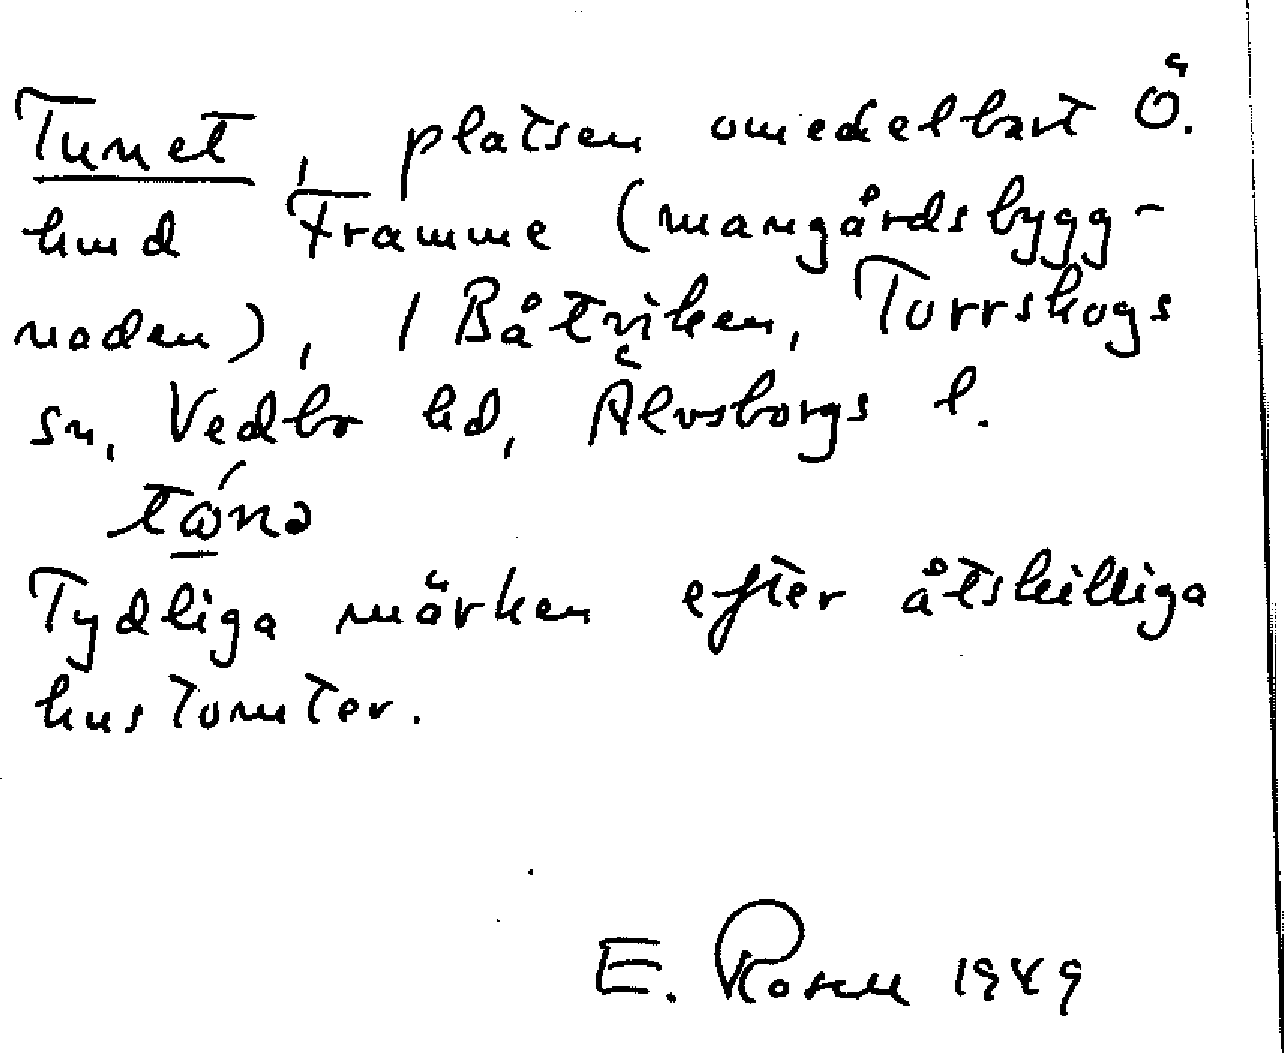 Tunet, platsen omedelbart Ö.
hund Framme (mangårdsbygg-
naden), 1 Båtviken, Torrskogs
sn, Vedbo hd, Älvsborgs l.
Tydliga märken efter åtskilliga
hustomter.
E. Rosell 1949